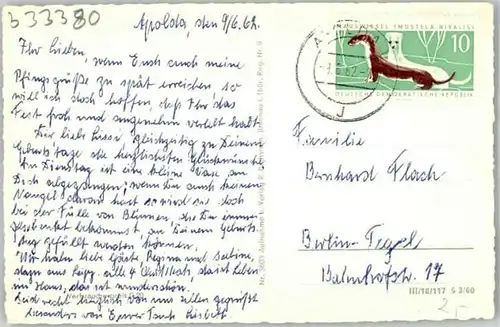 b33380
Apolda, den 9/6.62.
Ihr Lieben,
wenn Euch auch meine
Pfingstgrüße zu spät erreichen, so
will ich doch hoffen, daß Ihr das
Fest froh und angenehm verlebt habt.
Dir liebe gleichzeitig zu Deinem
Geburtstage die herzlichsten Glückwünsche.
Am Dienstag ist eine kleine Vase an
Dich abgegangen; wenn Du auch keinen
Mangel daran hast so wird sie doch
bei der Fülle von Blumen, die Du immer
geschenkt bekommst, an Deinem Geburts-
tag gefüllt werden können.
Wir haben liebe Gäste, Regina und Sabine,
dazu aus alle 4 da ist Leben
im Haus, das ist wunderschön.
Seid recht herzlich von uns allen gegrüßt
besonders von Eurer Tante
MAUSWIESEL (MUSTELA NIVALIS)
10
DEUTSCHE DEMOKRATISCHE REPUBLIK
J
Familie
Bernhard Flach
Berlin-Tegel
Bahnhofstr. 17
III/18/117 S 3/60
2,-